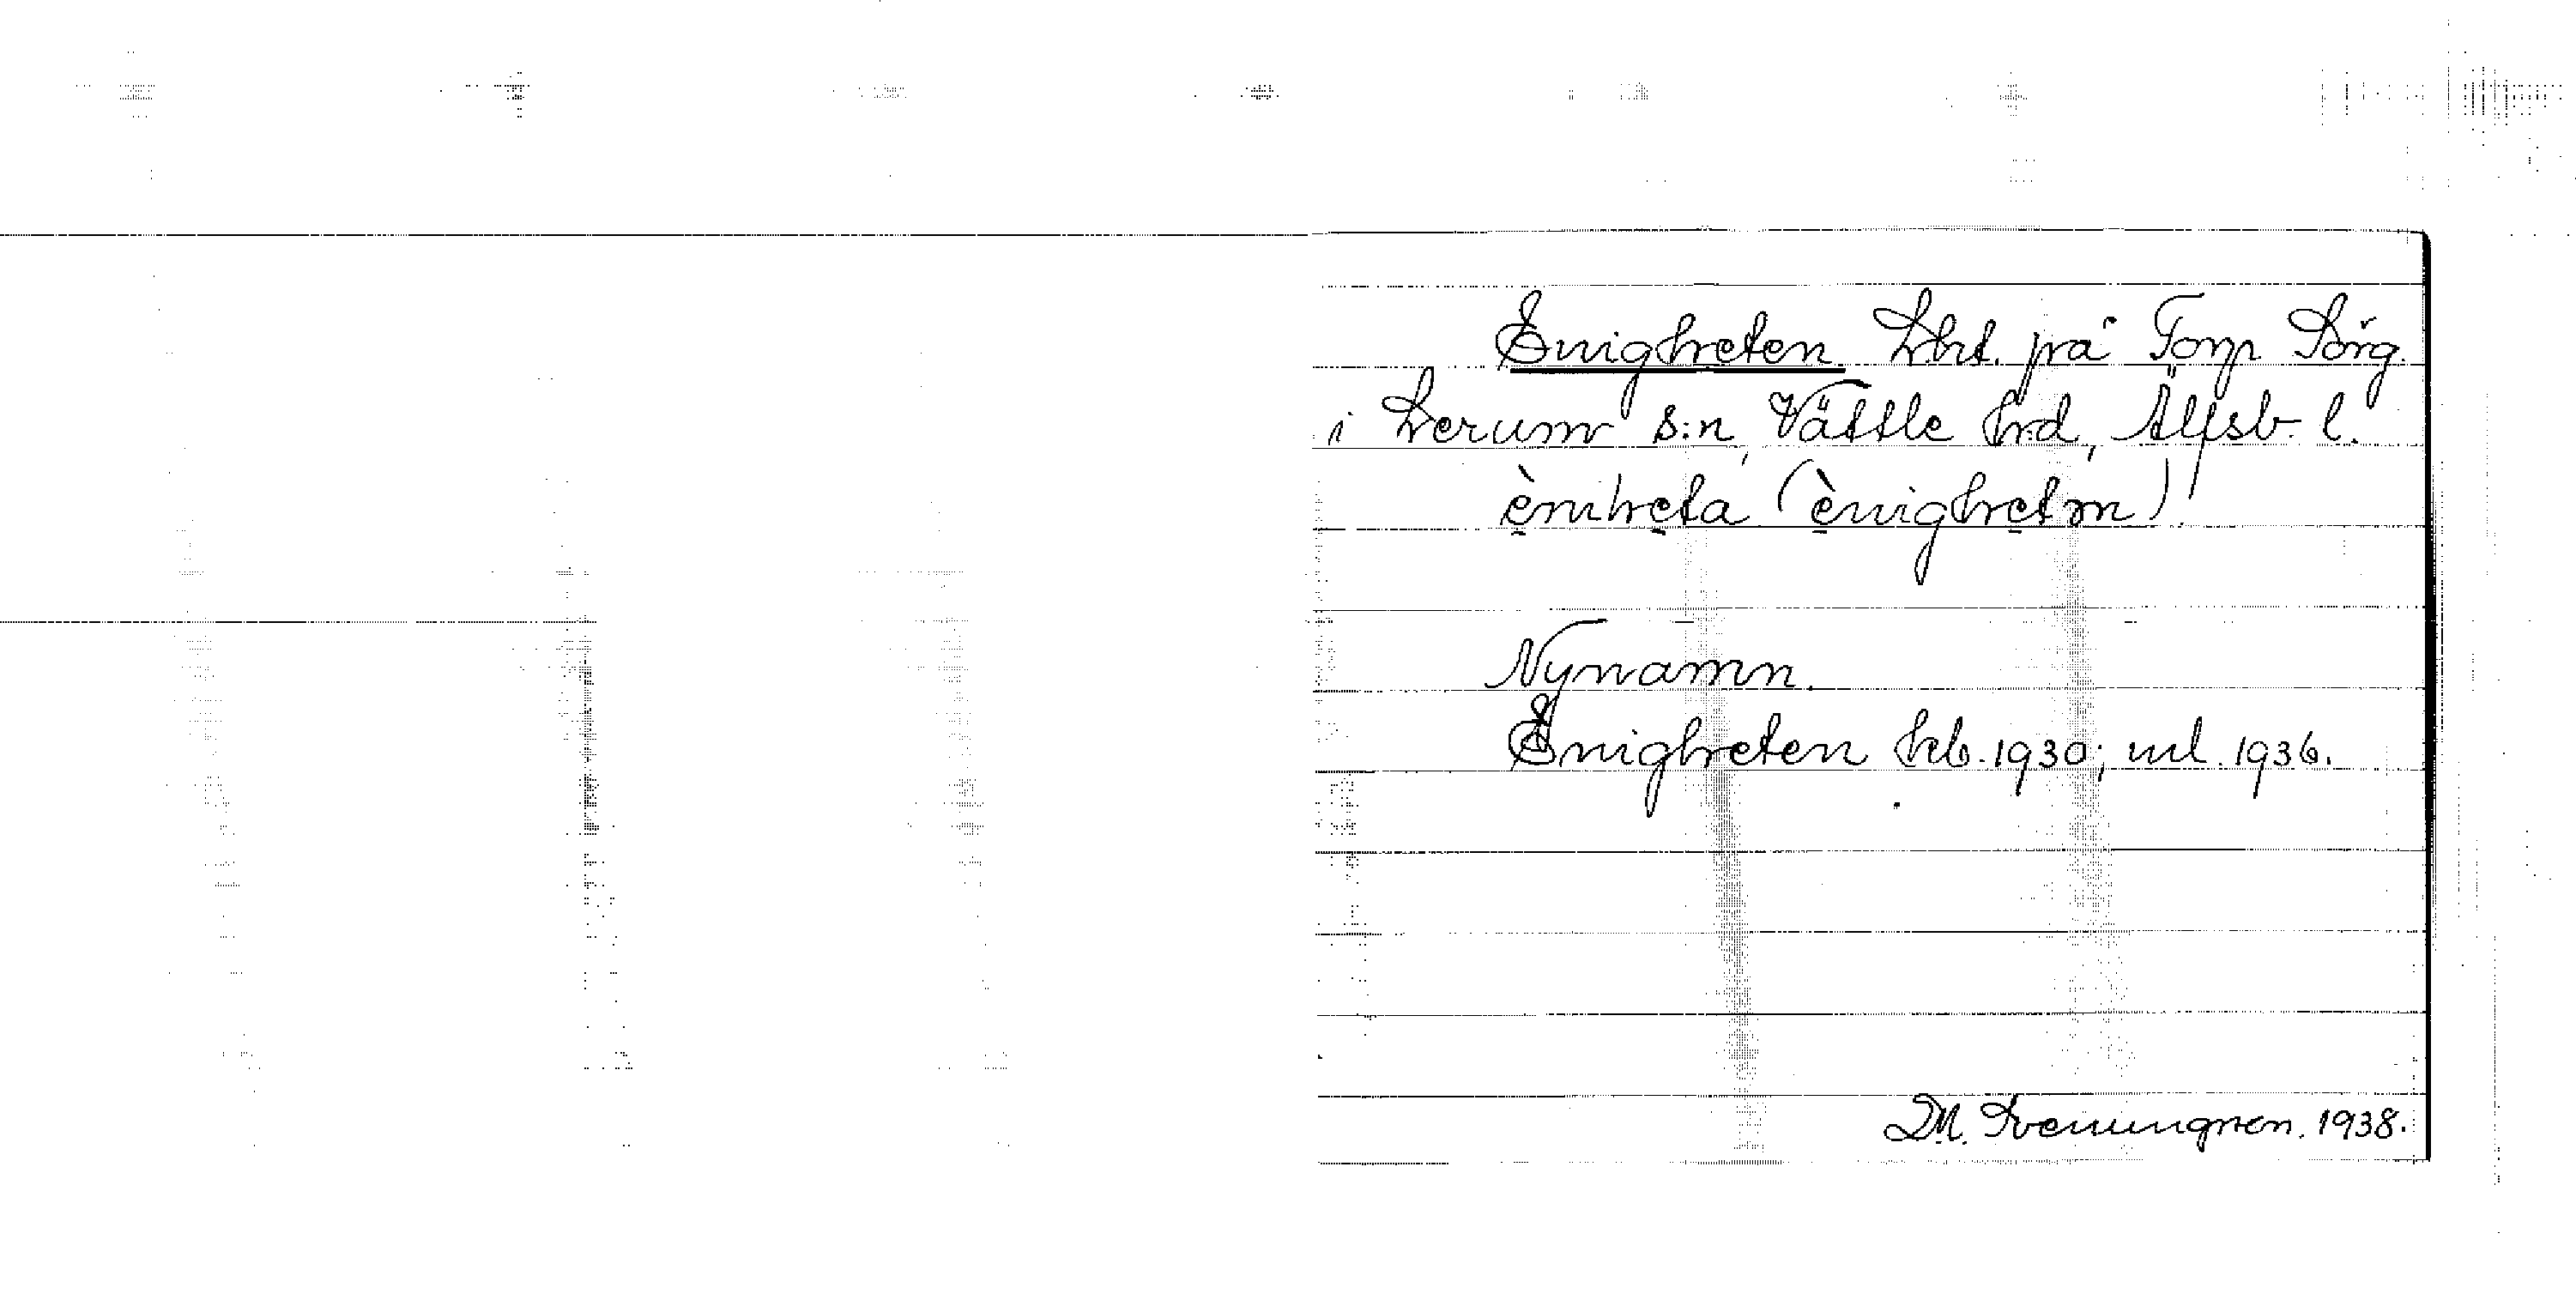 Enigheten Lht. på Torp Sörg.
i Lerum s:n, Vättle hrd, Älfsb. l.
èniheta (ènighetn).
Nynamn.
Enigheten hfl. 1930; ml. 1936.
D.M. Svenungsson. 1938.